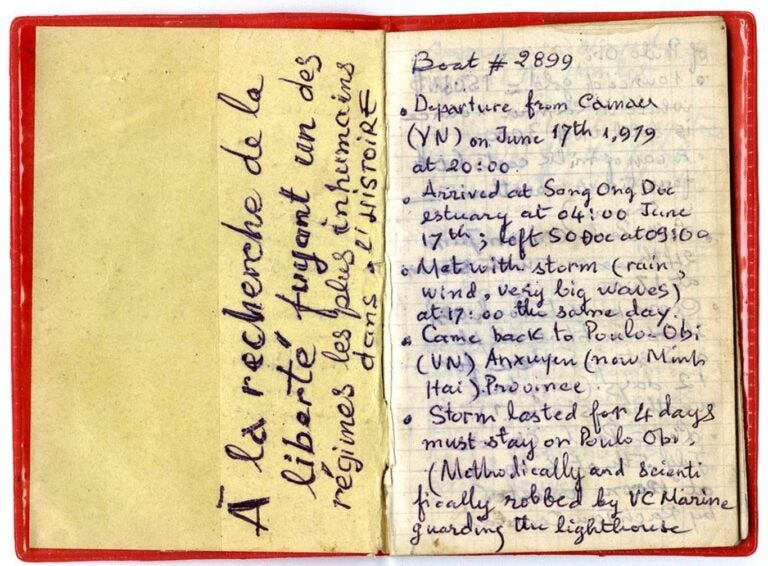 À la recherche de la
liberté fuyant un des
régimes les plus inhumains
dans l'HISTOIRE
Boat # 2899
• Departure from Camau
(VN) on June 17th 1,979
at 20:00.
• Arrived at Song Ong Doc
estuary at 04:00 June
17th; left SODoc at 09:00
• Met with storm (rain,
wind, very big waves)
at 17:00 the same day.
• Came back to Poulo-Obi
(VN) Anxuyen (now Minh
Hai) Province.
• Storm lasted for 4 days
must stay on Poulo Obi.
(Methodically and scienti
fically robbed by VC Marine
guarding the lighthouse